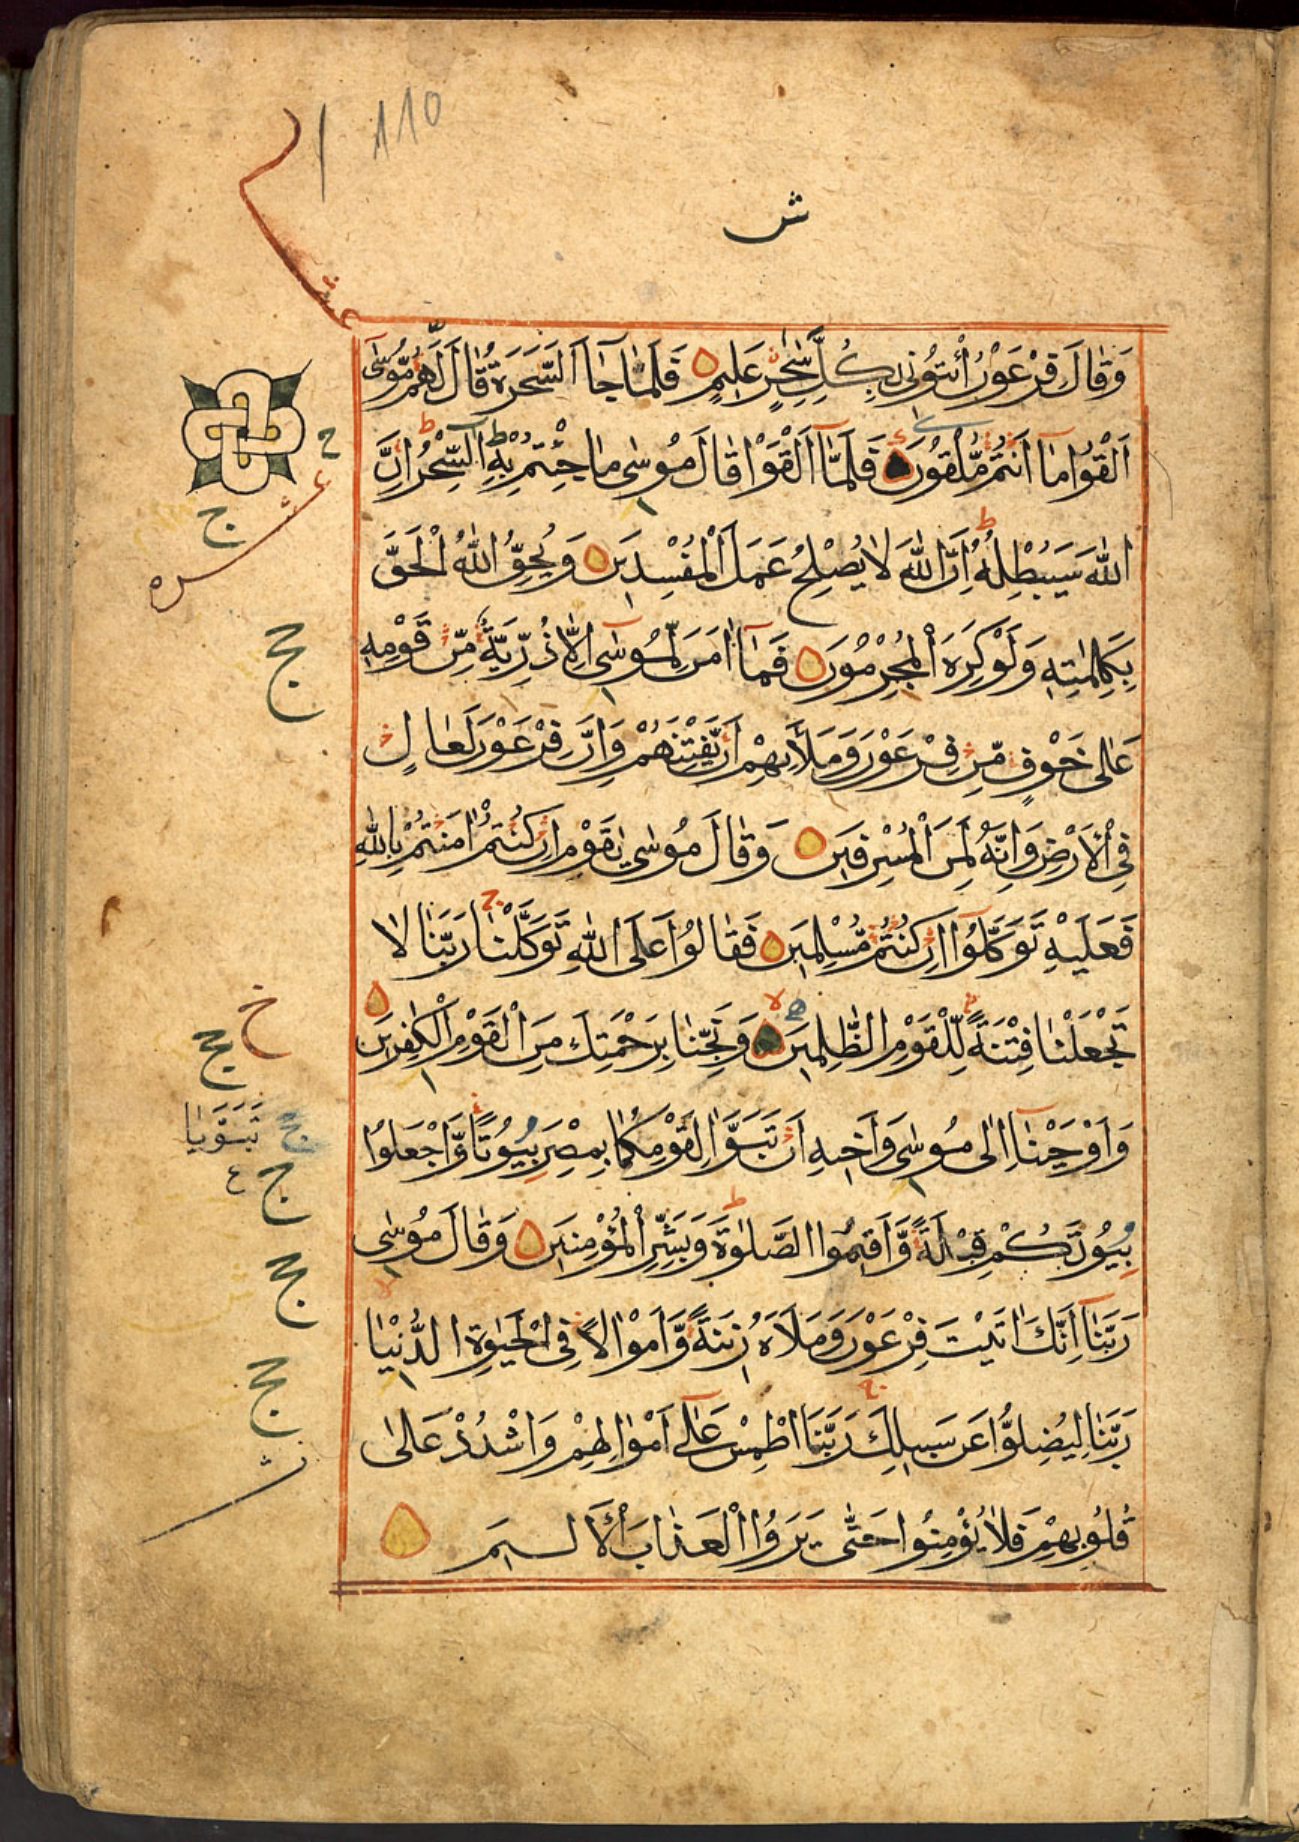 110
ش
عشر
وَقَالَ فِرْعَوْنُ ائْتُونِي بِكُلِّ سَٰحِرٍ عَلِيمٍ فَلَمَّا جَاۤءَ السَّحَرَةُ قَالَ لَهُمْ مُّوسٰۤى
اَلْقُوا مَاۤ اَنْتُمْ مُّلْقُوْنَ فَلَمَّاۤ اَلْقَوْا قَالَ مُوسٰى مَا جِئْتُمْ بِهِ السِّحْرُ اِنَّ
اللّٰهَ سَيُبْطِلُهُ اِنَّ اللّٰهَ لَا يُصْلِحُ عَمَلَ الْمُفْسِدِيْنَ وَيُحِقُّ اللّٰهُ الْحَقَّ
بِكَلِمٰتِهِ وَلَوْ كَرِهَ الْمُجْرِمُوْنَ فَمَاۤ اٰمَنَ لِمُوسٰۤى اِلَّا ذُرِّيَّةٌ مِّنْ قَوْمِهِ
عَلٰى خَوْفٍ مِّنْ فِرْعَوْنَ وَمَلَا۟ئِهِمْ اَنْ يَّفْتِنَهُمْ وَاِنَّ فِرْعَوْنَ لَعَالٍ
فِى الْاَرْضِ وَاِنَّهُ لَمِنَ الْمُسْرِفِيْنَ وَقَالَ مُوسٰى يٰقَوْمِ اِنْ كُنْتُمْ اٰمَنْتُمْ بِاللّٰهِ
فَعَلَيْهِ تَوَكَّلُوۤا اِنْ كُنْتُمْ مُّسْلِمِيْنَ فَقَالُوْا عَلَى اللّٰهِ تَوَكَّلْنَا رَبَّنَا لَا
تَجْعَلْنَا فِتْنَةً لِّلْقَوْمِ الظّٰلِمِيْنَ وَنَجِّنَا بِرَحْمَتِكَ مِنَ الْقَوْمِ الْكٰفِرِيْنَ
وَاَوْحَيْنَاۤ اِلٰى مُوسٰى وَاَخِيْهِ اَنْ تَبَوَّاٰ لِقَوْمِكُمَا بِمِصْرَ بُيُوْتًا وَّاجْعَلُوْا
بُيُوْتَكُمْ قِبْلَةً وَّاَقِيْمُوا الصَّلٰوةَ وَبَشِّرِ الْمُؤْمِنِيْنَ وَقَالَ مُوسٰى
رَبَّنَاۤ اِنَّكَ اٰتَيْتَ فِرْعَوْنَ وَمَلَاَهُ زِيْنَةً وَّاَمْوَالًا فِى الْحَيٰوةِ الدُّنْيَا
رَبَّنَا لِيُضِلُّوْا عَنْ سَبِيْلِكَ رَبَّنَا اطْمِسْ عَلٰۤى اَمْوَالِهِمْ وَاشْدُدْ عَلٰى
قُلُوْبِهِمْ فَلَا يُؤْمِنُوْا حَتّٰى يَرَوُا الْعَذَابَ الْاَلِيْمَ
ح
عشره
ج
تَبَوَّيَا
ج ع